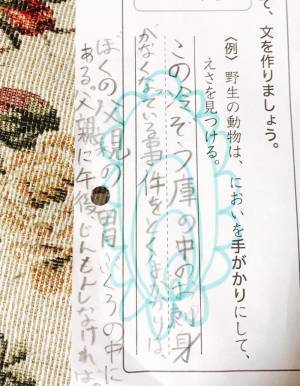 て、文を作りましょう。
〈例〉野生の動物は、においを手がかりにして、
えさを見つける。
この冷ぞう庫の中のお刺身
がなくなっている事件をとく手がかりは、
ぼくの父親の胃ぶくろの中に
ある。父親に午後じんもんしなければ。